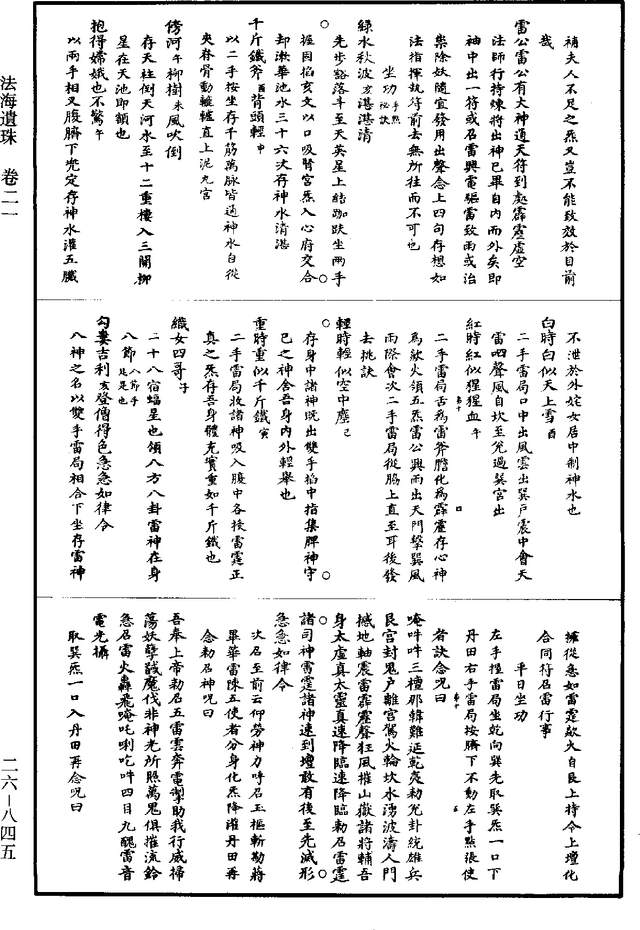 補夫人不足之炁又豈不能致效於目前
哉
雷公雷公有大神通天符到處霹靂虛空
法師行持煉將出神已畢自內而外矣即
袖中出一符或召雷興電驅雷致雨或治
祟除妖隨宜發用出聲念上四句存想如
法指揮執符前去無所往而不可也
坐功手㸃秘訣
綠水秋波亥湛湛清
先步豁落斗至天英星上結跏趺坐兩手
握固掐亥文以口吸腎宮炁入心府交合
却漱華池水三十六次存神水清湛
千斤鐵斧酉背頭輕申
以二手按坐存千筋萬脉皆通神水自從
夾脊骨動轆轤直上泥丸宮
傍河午柳樹未風吹倒
存天柱倒天河水至十二重樓入三關柳
星在天池即額也
抱得嫦娥也不驚午
以兩手相叉腹臍下兠定存神水灌五臟
不泄於外姹女居中制神水也
白時白似天上雪酉
二手雷局口中出風雲出巽戶震中會天
雷四聲風自坎至兊過巽宮出
紅時紅似猩猩血午
二手雷局舌為雷斧膽化為霹靂存心神
為歘火領五炁雷公興雨出天門擊巽風
雨際會次二手雷局從脇上直至耳後發
去挑訣
輕時輕似空中塵己
存身中諸神既出雙手掐中指集脾神守
己之神舍吾身內外輕舉也
重時重似千斤鐵寅
二手雷局收諸神吸入腹中各按雷霆正
真之炁存吾身體充實重如千斤鐵也
織女四哥子
二十八宿蝠星也領八方八卦雷神在身
八節八節手足是也
勾婁吉利亥登僧得色急急如律令
八神之名以雙手雷局相合下坐存雷神
擁從急如雷霆歘大自艮上持令上壇化
合同符召雷行事
平日坐功
左手握雷局坐乾向巽先取巽炁一口下
丹田右手雷局按臍下不動左手㸃張使
者訣念呪曰
唵吽吽三檀那韓難延乾晟勅兊卦統雄兵
艮宮封鬼戶離宮駕火輪坎水湧波濤人門
撼地軸震雷霹靂聲狂風摧山嶽諸將輔吾
身太虛真太靈真速降臨速降臨勅召雷霆
諸司神雷霆諸神速到壇敢有後至先滅形
急急如律令
次召至前云仰勞神力呼召玉樞斬勘將
畢華雷陳五使者分身化炁降灌丹田再
念勅召神呪曰
吾奉上帝勅召五雷雲奔電掣助我行威掃
蕩妖孽馘魔伐非神光所照萬鬼俱摧流鈴
急召雷火轟飛唵吒唎吃吽四目九醜雷音
電光攝
取巽炁一口入丹田再念呪曰
法海遺珠 卷二一
二六-八四五